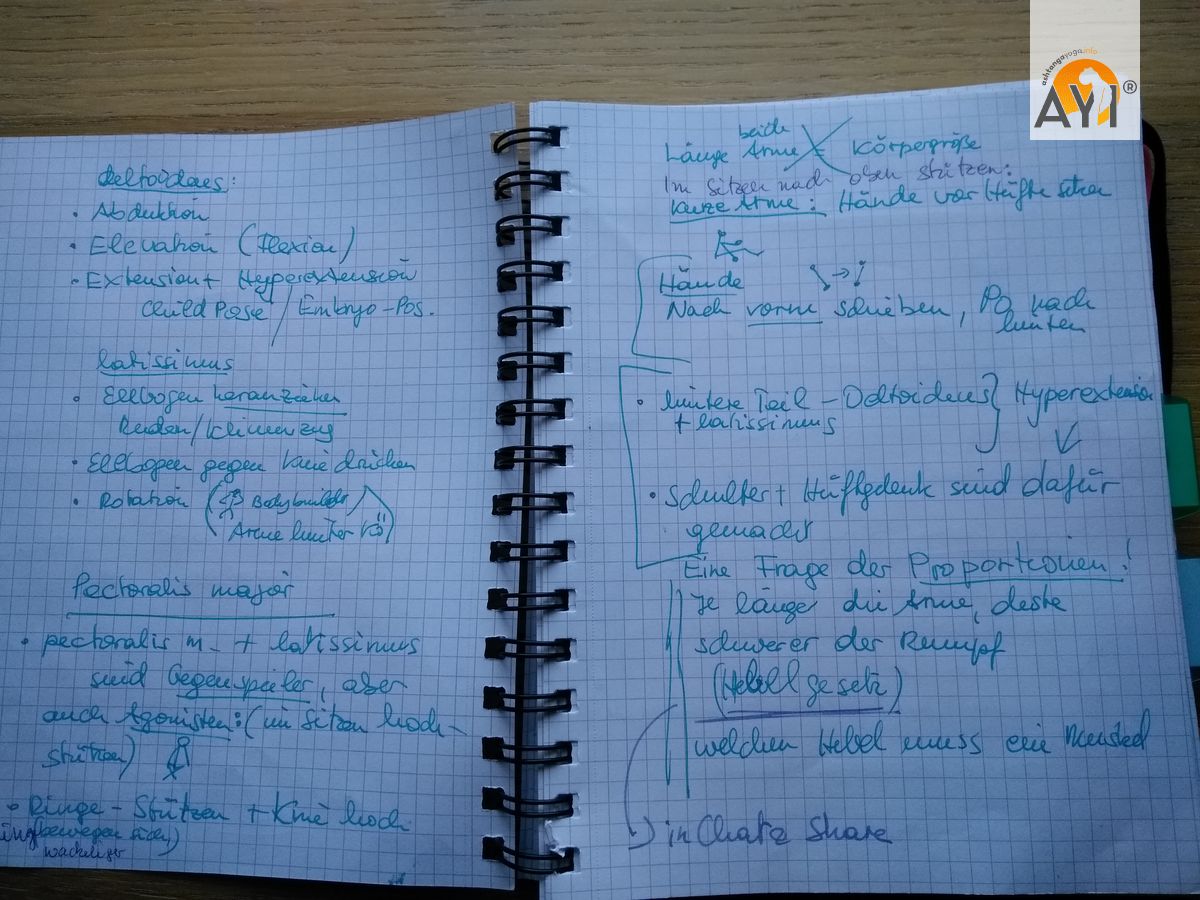 deltoideus:
• Abduktion
• Elevation (Flexion)
• Extension + Hyperextension
Child Pose / Embryo-Pos.
Latissimus
• Ellbogen heranziehen
Rudern/Klimmzug
• Ellbogen gegen Knie drücken
• Rotation ( Bodybuilder
Arme hinter )
Pectoralis major
• pectoralis m. + latissimus
sind Gegenspieler, aber
auch Agonisten: (im Sitzen hoch-
stützen)
• Ringe - Stützen + Knie hoch
bewegen sich)
wackeliger
beide
Länge Arme = Körpergröße
Im Sitzen nach oben stützen:
Kurze Arme: Hände vor Hüfte
Hände
Nach vorne schieben, Po nach
hinten
• hintere Teil - Deltoideus } Hyperextension
+ Latissimus
• Schulter + Hüftgelenk sind dafür
gemacht
Eine Frage der Proportionen!
Je länger die Arme, desto
schwerer der Rumpf
(Hebelgesetz)
welchen Hebel muss ein Muskel
in Chat Share
ashtangayoga.info
AYI®